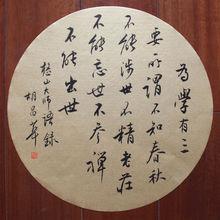 為學有三
要所謂不知春秋
不能涉世不精老莊
不能忘世不参禪
不能出世
憨山大师語錄
胡昌華